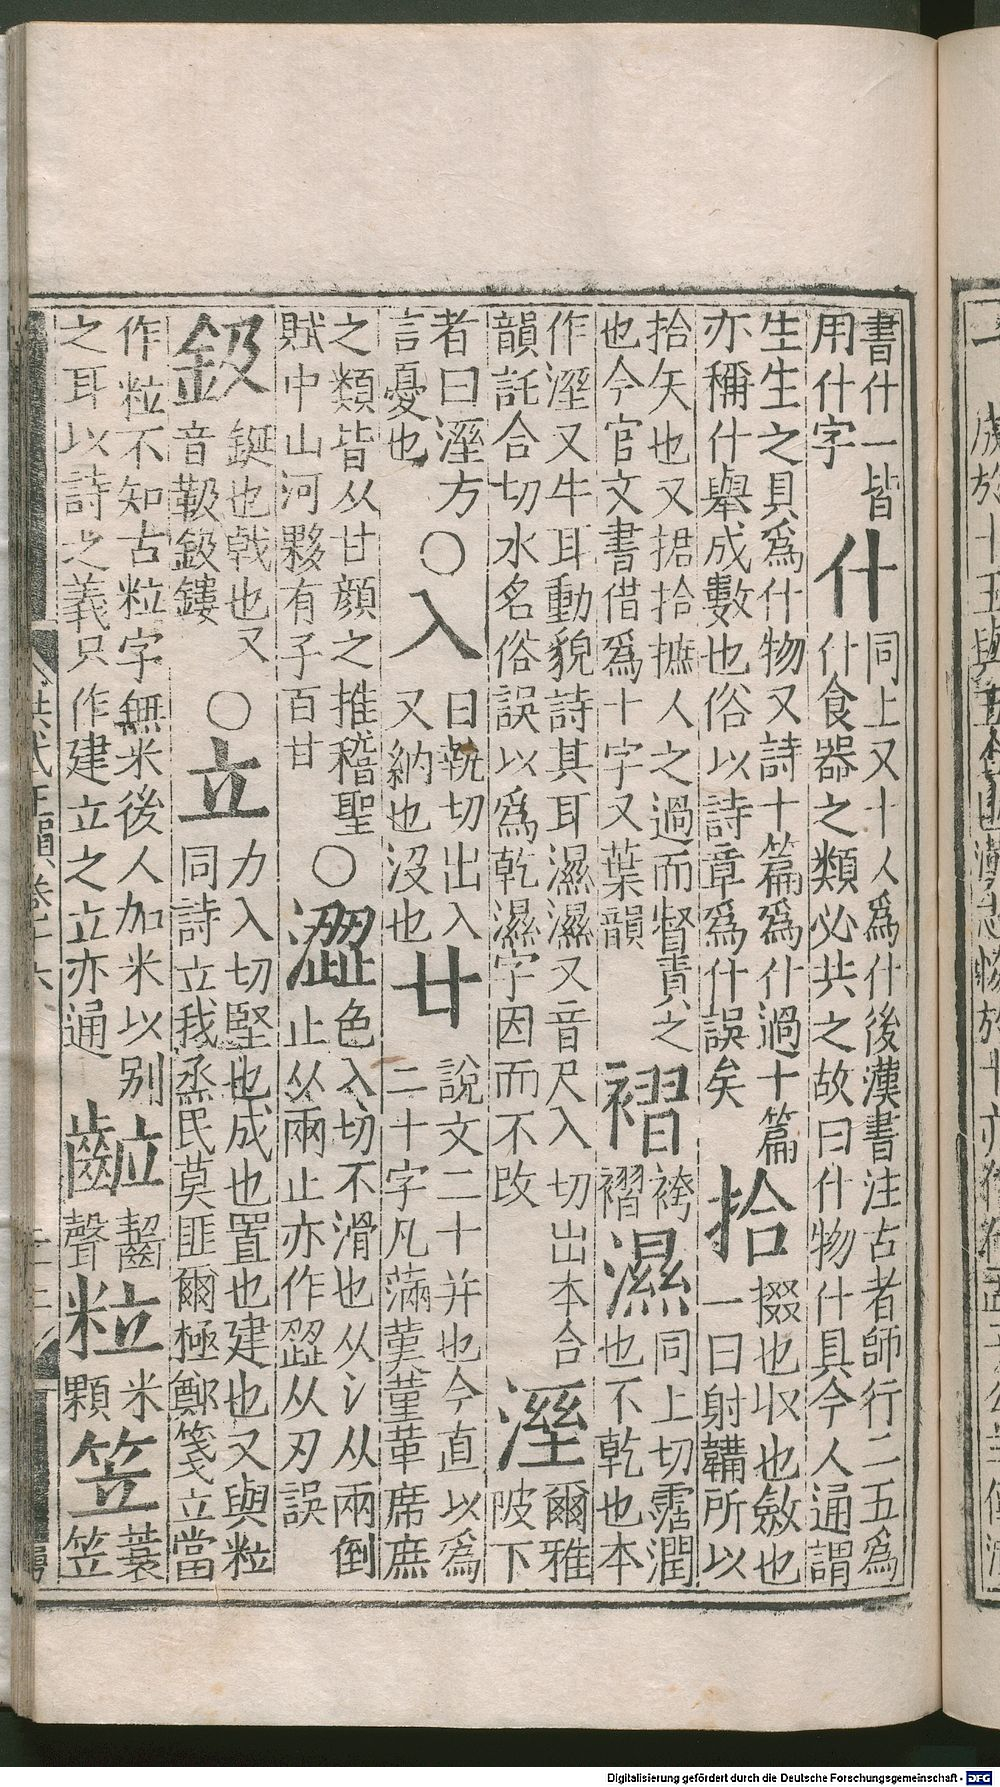 書什一皆用什字什同上又十人爲什後漢書注古者師行二五爲什食器之類必共之故曰什物什具今人通謂
生生之具爲什物又詩十篇爲什過十篇亦稱什舉成數也俗以詩章爲什誤矣拾掇也収也斂也一曰射韝所以
拾矢也又捃拾摭人之過而督責之也今官文書借爲十字又葉韻褶袴褶濕同上切霑潤也不乾也本
作溼又牛耳動貌詩其耳濕濕又音尺入切出本合韻託合切水名俗誤以爲乾濕字因而不改溼爾雅陂下
者曰溼方言憂也○入日執切出入又納也沒也廿說文二十并也今直以爲二十字凡滿𦰩董革席庶
之類皆从甘顔之推稽聖賦中山河夥有子百甘○澀色入切不滑也从氵从兩倒止从兩止亦作澁从刃誤
鈒鋋也戟也又音靸鈒鏤○立力入切堅也成也置也建也又與粒同詩立我烝民莫匪爾極鄭箋立當
作粒不知古粒字無米後人加米以别之耳以詩之義只作建立之立亦通𪗶齧聲粒米顆笠簑笠
洪武正韻卷十六
Digitalisierung gefördert durch die Deutsche Forschungsgemeinschaft - DFG